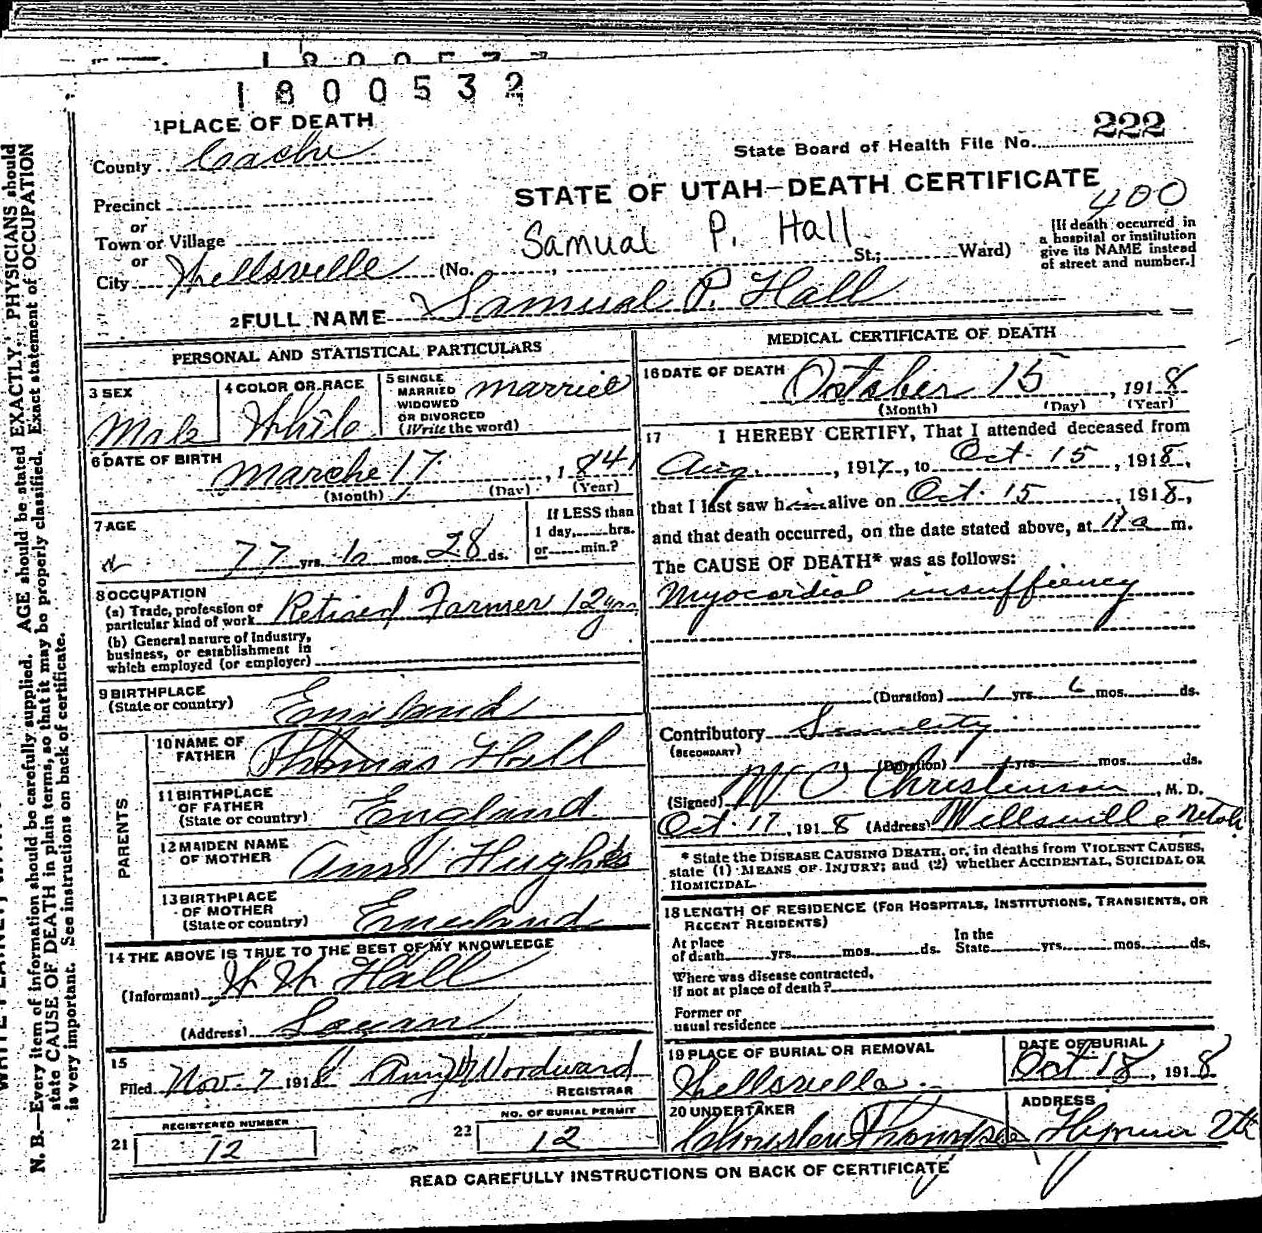 1800532
1 PLACE OF DEATH
222
County Cache
State Board of Health File No.
STATE OF UTAH—DEATH CERTIFICATE
400
Precinct
or
Town or Village
or
City Wellsville
Samual P. Hall
(No. , St.; Ward)
[If death occurred in
a hospital or institution
give its NAME instead
of street and number.]
2 FULL NAME Samual P. Hall
PERSONAL AND STATISTICAL PARTICULARS
3 SEX
Male
4 COLOR OR RACE
White
5 SINGLE
MARRIED
WIDOWED
OR DIVORCED
(Write the word)
Married
6 DATE OF BIRTH
Marche 17, 1841
(Month) (Day) (Year)
7 AGE
77 yrs. mos. 28 ds.
If LESS than
1 day, hrs.
or min.?
8 OCCUPATION
(a) Trade, profession or
particular kind of work Retired Farmer 12 yrs
(b) General nature of industry,
business, or establishment in
which employed (or employer)
9 BIRTHPLACE
(State or country) England
PARENTS
10 NAME OF
FATHER Thomas Hall
11 BIRTHPLACE
OF FATHER
(State or country) England
12 MAIDEN NAME
OF MOTHER Ann Hughes
13 BIRTHPLACE
OF MOTHER
(State or country) England
14 THE ABOVE IS TRUE TO THE BEST OF MY KNOWLEDGE
(Informant) Hall
(Address) Logan
15
Filed Nov. 7 1918 Woodward
REGISTRAR
21 REGISTERED NUMBER
12
22 NO. OF BURIAL PERMIT
12
MEDICAL CERTIFICATE OF DEATH
16 DATE OF DEATH
October 15, 1918
(Month) (Day) (Year)
17 I HEREBY CERTIFY, That I attended deceased from
Aug., 1917, to Oct. 15, 1918,
that I last saw him alive on Oct. 15, 1918,
and that death occurred, on the date stated above, at 11 a m.
The CAUSE OF DEATH* was as follows:
Myocardial insuffiency
(Duration) 1 yrs. 6 mos. ds.
Contributory Senility
(SECONDARY)
(Duration) yrs. mos. ds.
(Signed) W O Christenson, M. D.
Oct. 17, 1918 (Address) Wellsville Utah
* State the DISEASE CAUSING DEATH, or, in deaths from VIOLENT CAUSES,
state (1) MEANS OF INJURY; and (2) whether ACCIDENTAL, SUICIDAL OR
HOMICIDAL.
18 LENGTH OF RESIDENCE (FOR HOSPITALS, INSTITUTIONS, TRANSIENTS, OR
RECENT RESIDENTS)
At place
of death yrs. mos. ds.
In the
State yrs. mos. ds.
Where was disease contracted,
If not at place of death?
Former or
usual residence
19 PLACE OF BURIAL OR REMOVAL
Wellsville
DATE OF BURIAL
Oct 18, 1918
20 UNDERTAKER
ADDRESS
READ CAREFULLY INSTRUCTIONS ON BACK OF CERTIFICATE
N. B.—Every item of information should be carefully supplied. AGE should be stated EXACTLY. PHYSICIANS should
state CAUSE OF DEATH in plain terms, so that it may be properly classified. Exact statement of OCCUPATION
is very important. See instructions on back of certificate.